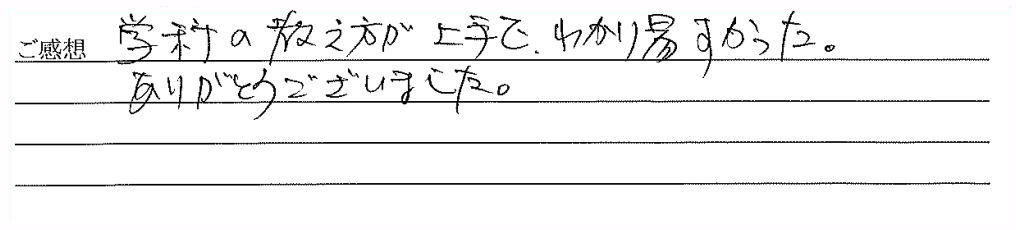 ご感想 学科の教え方が上手で、わかり易すかった。
ありがとうございました。